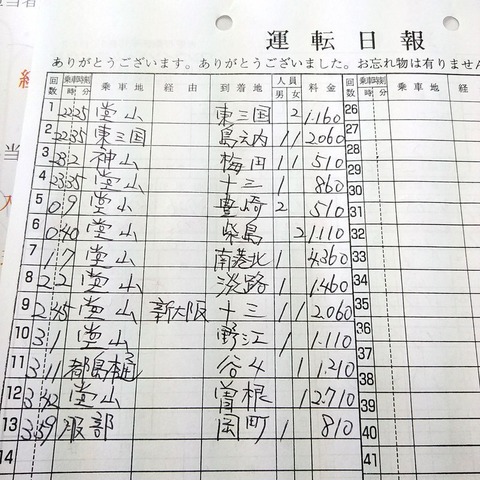 運転日報
ありがとうございます。ありがとうございました。お忘れ物は有りません
回数 乗車時刻 時 分 乗車地 経由 到着地 人員 男 女 料金 回数 乗車時刻 時 分 乗車地
1 22 25 堂山 東三国 2 1,160 26
2 22 35 東三国 島之内 1 1 2,060 27
3 23 2 神山 梅田 1 1 510 28
4 23 35 堂山 十三 1 860 29
5 0 9 堂山 豊崎 2 510 30
6 0 40 堂山 柴島 2 1,110 31
7 1 7 堂山 南港北 1 4,360 32
8 2 2 堂山 淡路 1 1,460 33
9 2 45 堂山 新大阪 十三 1 1 2,060 34
10 3 1 堂山 野江 1 1,110 35
11 3 11 都島本通 谷4 1 1,210 36
12 3 42 堂山 曽根 1 2,710 37
13 3 59 服部 岡町 1 810 38
14 39
40
41